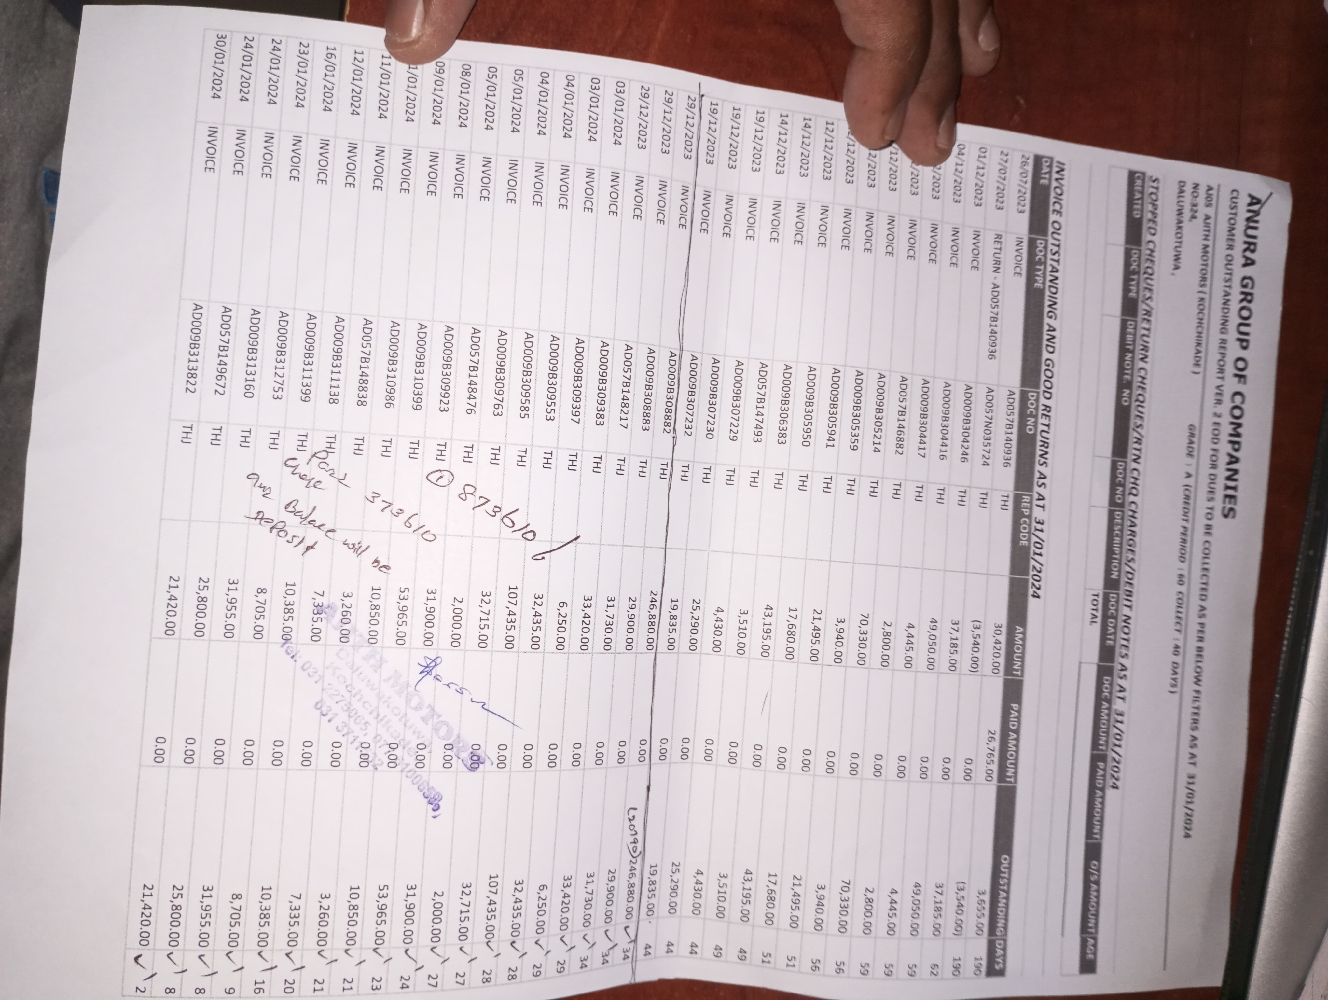 ANURA GROUP OF COMPANIES
CUSTOMER OUTSTANDING REPORT VER. 2 EOD FOR DUES TO BE COLLECTED AS PER BELOW FILTERS AS AT 31/01/2024
A005 AJITH MOTORS ( KOCHCHIKADE ) GRADE : A (CREDIT PERIOD : 60 COLLECT : 40 DAYS)
NO:324,
DALUWAKOTUWA ,
STOPPED CHEQUES/RETURN CHEQUES/RTN CHQ CHARGES/DEBIT NOTES AS AT 31/01/2024
CREATED DOC TYPE DEBIT NOTE. NO DOC NO DESCRIPTION DOC DATE DOC AMOUNT PAID AMOUNT O/S AMOUNT AGE
TOTAL
INVOICE OUTSTANDING AND GOOD RETURNS AS AT 31/01/2024
DATE DOC TYPE DOC NO REP CODE AMOUNT PAID AMOUNT OUTSTANDING DAYS
26/07/2023 INVOICE AD057B140936 THJ 30,420.00 26,765.00 3,655.00 190
27/07/2023 RETURN - AD057B140936 AD057N035724 THJ (3,540.00) 0.00 (3,540.00) 190
01/12/2023 INVOICE AD009B304246 THJ 37,185.00 0.00 37,185.00 62
04/12/2023 INVOICE AD009B304416 THJ 49,050.00 0.00 49,050.00 59
/12/2023 INVOICE AD009B304417 THJ 4,445.00 0.00 4,445.00 59
/12/2023 INVOICE AD057B146882 THJ 2,800.00 0.00 2,800.00 59
/12/2023 INVOICE AD009B305214 THJ 70,330.00 0.00 70,330.00 56
/12/2023 INVOICE AD009B305359 THJ 3,940.00 0.00 3,940.00 56
/12/2023 INVOICE AD009B305941 THJ 21,495.00 0.00 21,495.00 51
12/12/2023 INVOICE AD009B305950 THJ 17,680.00 0.00 17,680.00 51
14/12/2023 INVOICE AD009B306383 THJ 43,195.00 0.00 43,195.00 49
14/12/2023 INVOICE AD057B147493 THJ 3,510.00 0.00 3,510.00 49
19/12/2023 INVOICE AD009B307229 THJ 4,430.00 0.00 4,430.00 44
19/12/2023 INVOICE AD009B307230 THJ 25,290.00 0.00 25,290.00 44
19/12/2023 INVOICE AD009B307232 THJ 19,835.00 0.00 19,835.00 44
29/12/2023 INVOICE AD009B308882 THJ 246,880.00 0.00 (20190) 246,880.00 34
29/12/2023 INVOICE AD009B308883 THJ 29,900.00 0.00 29,900.00 34
29/12/2023 INVOICE AD057B148217 THJ 31,730.00 0.00 31,730.00 34
03/01/2024 INVOICE AD009B309383 THJ 33,420.00 0.00 33,420.00 29
03/01/2024 INVOICE AD009B309397 THJ 6,250.00 0.00 6,250.00 29
04/01/2024 INVOICE AD009B309553 THJ 32,435.00 0.00 32,435.00 28
04/01/2024 INVOICE AD009B309585 THJ 107,435.00 0.00 107,435.00 28
05/01/2024 INVOICE AD009B309763 THJ 32,715.00 0.00 32,715.00 27
05/01/2024 INVOICE AD057B148476 THJ 2,000.00 0.00 2,000.00 27
08/01/2024 INVOICE AD009B309923 THJ 31,900.00 0.00 31,900.00 24
09/01/2024 INVOICE AD009B310399 THJ 53,965.00 0.00 53,965.00 23
1/01/2024 INVOICE AD009B310986 THJ 10,850.00 0.00 10,850.00 21
11/01/2024 INVOICE AD057B148838 THJ 3,260.00 0.00 3,260.00 21
12/01/2024 INVOICE AD009B311138 THJ 7,335.00 0.00 7,335.00 20
16/01/2024 INVOICE AD009B311399 THJ 10,385.00 0.00 10,385.00 16
23/01/2024 INVOICE AD009B312753 THJ 8,705.00 0.00 8,705.00 9
24/01/2024 INVOICE AD009B313160 THJ 31,955.00 0.00 31,955.00 8
24/01/2024 INVOICE AD057B149672 THJ 25,800.00 0.00 25,800.00 8
30/01/2024 INVOICE AD009B313822 THJ 21,420.00 0.00 21,420.00 2
① 873610
Part 373610
and Balance will be
Deposit
AJITH MOTORS